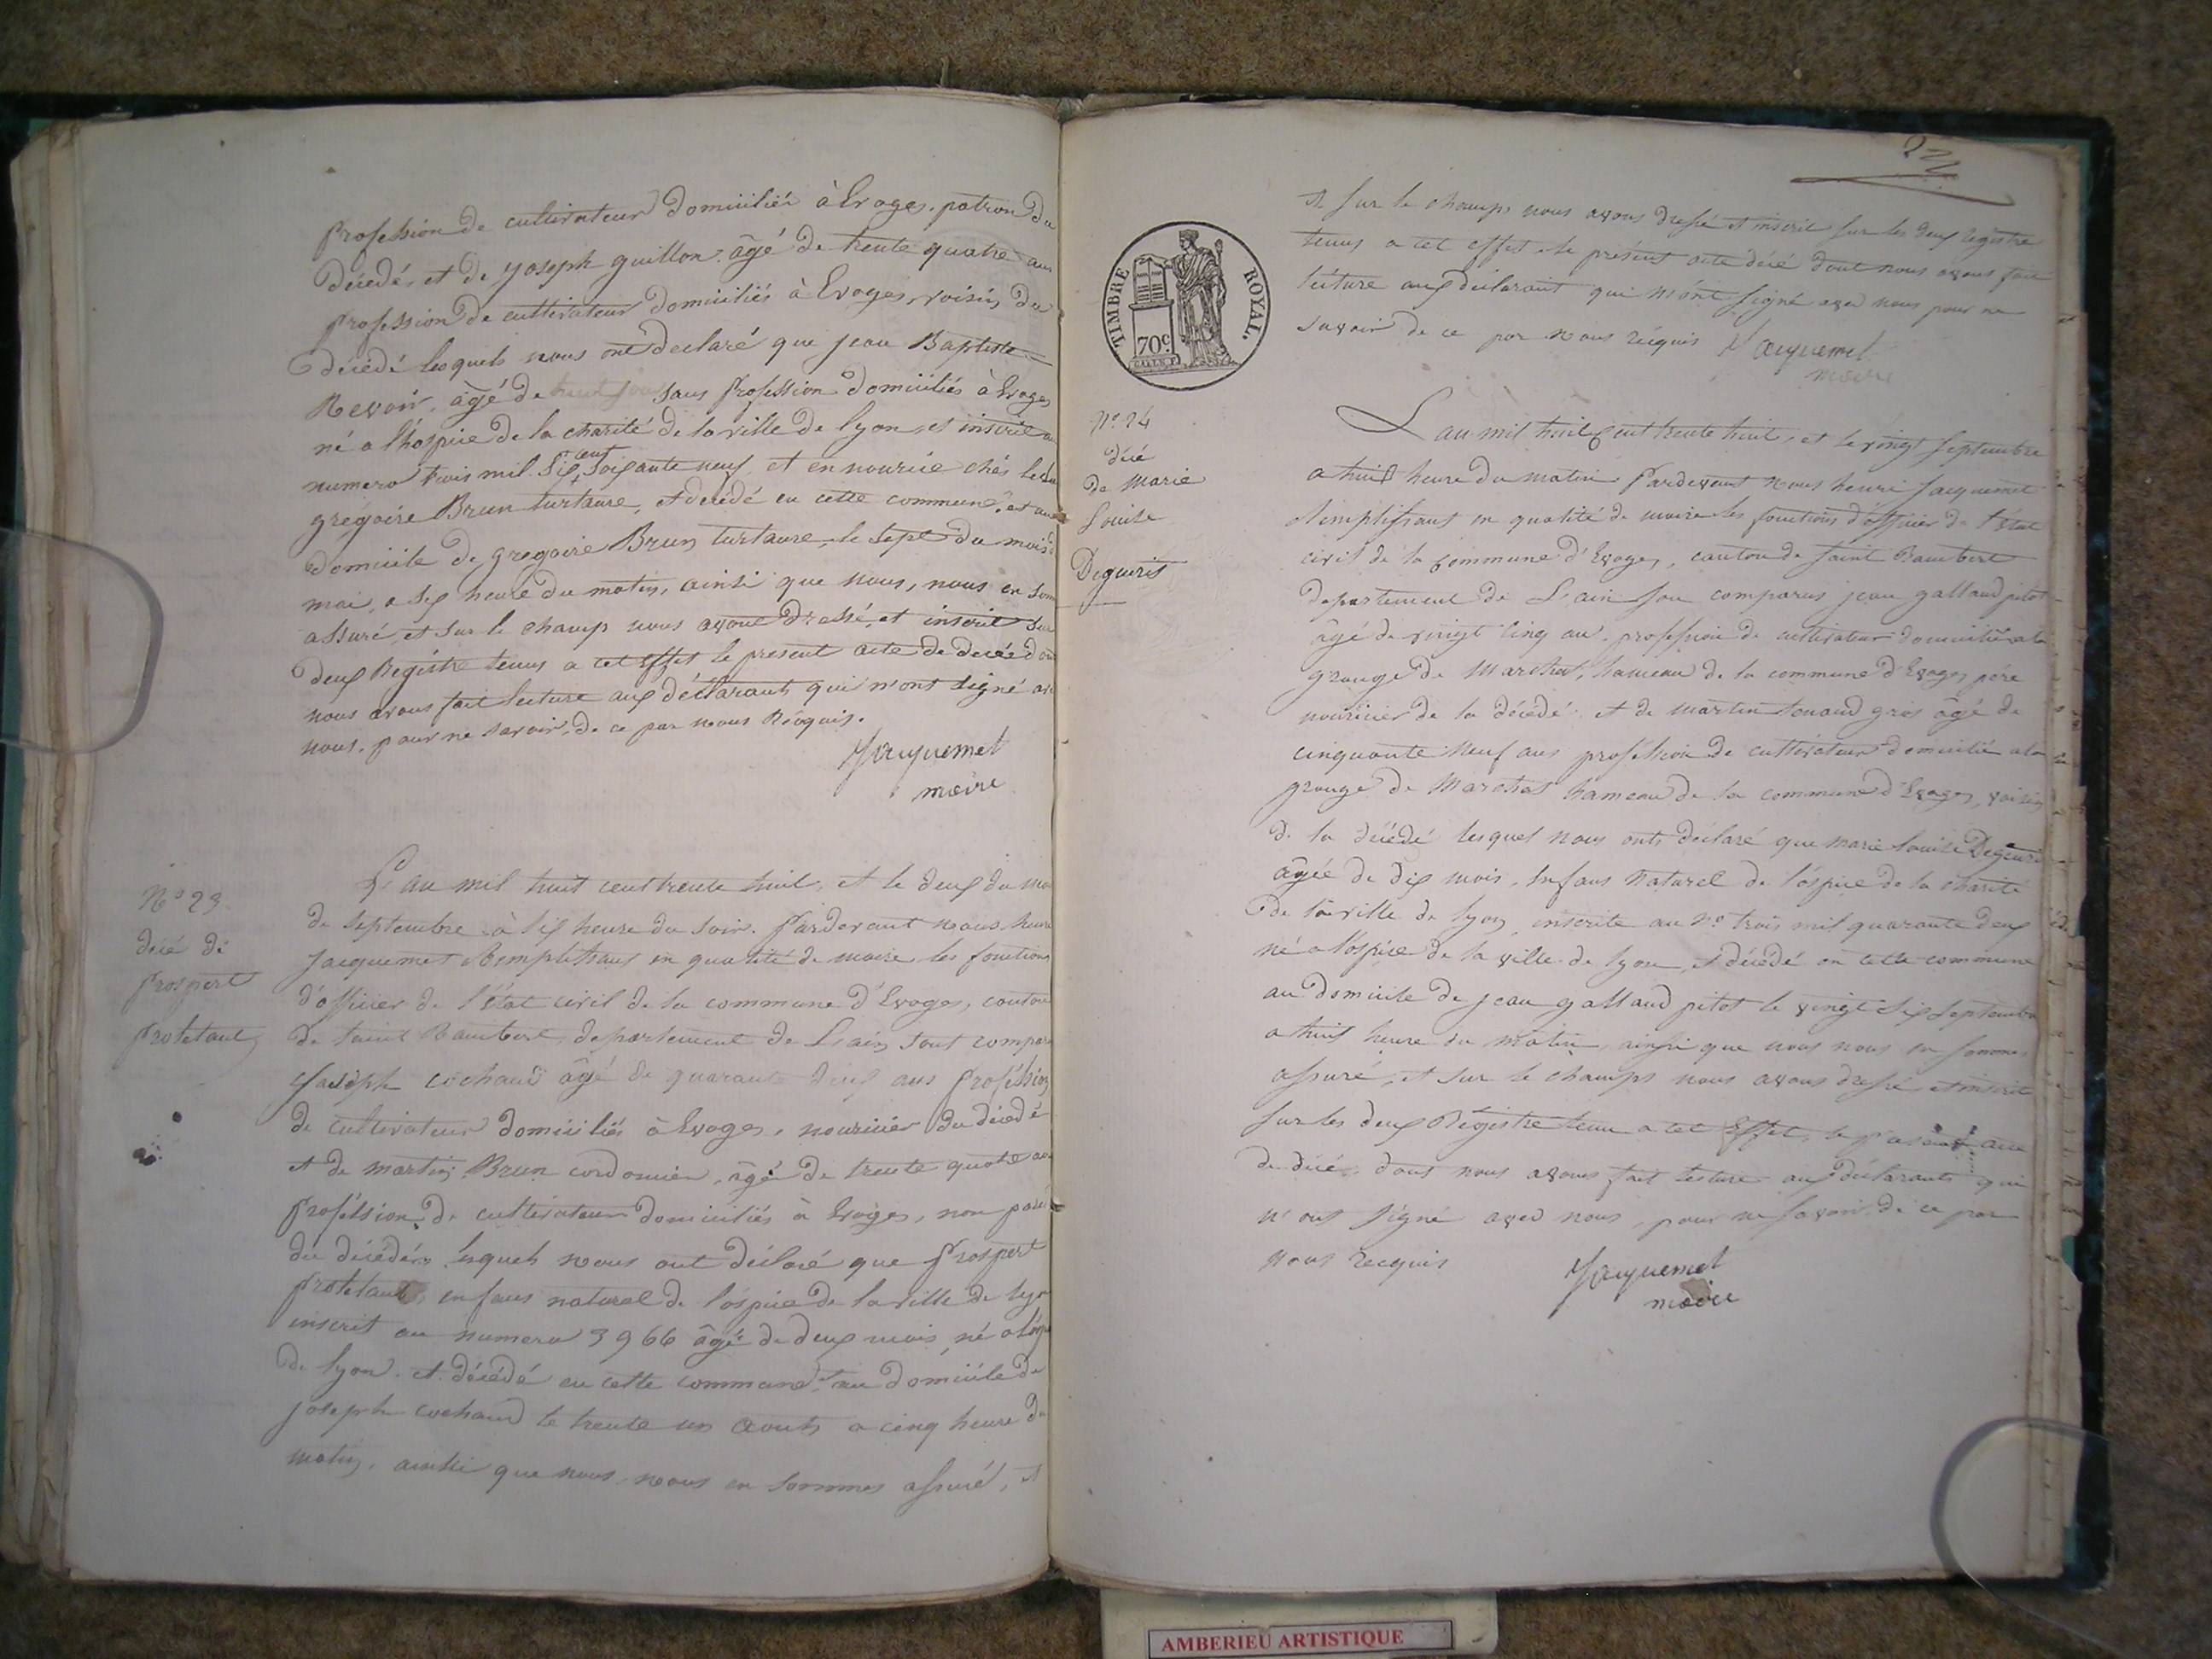 profession de cultivateur domicilié à Evoges, patron du
décédé, et de joseph guillon, âgé de trente quatre ans
profession de cultivateur domiciliés à Evoges, voisin du
décédé lesquels nous ont declaré que jean Baptiste
Revoir, âgé de sans profession domiciliés à Evoges
né a l'hospice de la charité de la ville de lyon, et inscrit au
numero trois mil six cent soixante neuf, et en nourice chés ledit
gregoire Brun turtaure, et décédé en cette commune, et au
domicile de gregoire Brun turtaure, le sept du mois de
mai, a six heure du matin, ainsi que nous, nous en som
assuré, et sur le champ nous avons dressé, et inscrit sur
deux Registre tenus a cet effet le present acte de décé dont
nous avons fait lecture aux déclarants qui n'ont signé avec
nous, pour ne savoir, de ce par nous Réquis.
Jacquemet
maire
N° 23
décé de
prospert
protetant
L'an mil huit cent trente huit, et le deux du mois
de septembre à six heure du soir. Pardevant nous henri
jacquemet Remplissant en qualité de maire les fonctions
d'officier de l'état civil de la commune d'Evoges, canton
de saint Rambert, departement de L'ain, sont comparu
joseph cochaud âgé de quarante deux ans profession
de cultivateur domiciliés à Evoges, nouricier du décédé
et de martin Brun cordonnier, âgé de trente quatre ans
profession de cultivateur domiciliés à Evoges, non parent
du décédé, lesquels nous ont déclaré que prospert
protetant, enfans naturel de l'ospice de la ville de lyon
inscrit au numero 3966 âgé de deux mois, né a l'ospice
de lyon, et décédé en cette commune, au domicile de
joseph cochaud le trente un aouts a cinq heure du
matin, ainsi que nous nous en sommes assuré, et
22
TIMBRE ROYAL.
70c
et sur le champs nous avons dressé et inscrit sur les deux registre
tenus a cet effet le présent acte décé dont nous avons fait
lecture aux déclarant qui n'ont signé avec nous pour ne
savoir de ce par nous réquis Jacquemet
maire
N° 24
décé
de Marie
Louise
Degueris
L'an mil huit cent trente huit, et le vingt septembre
a huit heure du matin Pardevant nous henri jacquemet
Remplissant en qualité de maire les fonctions d'officier de l'état
civil de la commune d'Evoges, canton de saint Rambert
departement de L'ain son comparus jean gallaud pitot
âgé de vingt cinq an, profession de cultivateur domicilié a la
grange de Marchat, hameau de la commune d'Evoges père
nouricier de la décédé, et de martin gros âgé de
cinquante neuf ans profession de cultivateur domicilié a la
grange de Marchat hameau de la commune d'Evoges, voisin
de la décédé lesquel nous onts déclaré que marie louise Degueris
âgée de dix mois, enfans naturel de l'ospice de la charité
de la ville de lyon, inscrite au N° trois mil quarante deux
né a l'ospice de la ville de lyon, et décédé en cette commune
au domicile de jean gallaud pitot le vingt six septembre
a huit heure du matin, ainsi que nous nous en sommes
assuré, et sur le champs nous avons dressé et inscrit
sur les deux Régistre tenu a cet Effet, le present acte
de décé, dont nous avons fait lecture aux déclarants qui
n'ont signé avec nous, pour ne savoir de ce par
nous recquis
Jacquemet
maire
AMBERIEU ARTISTIQUE